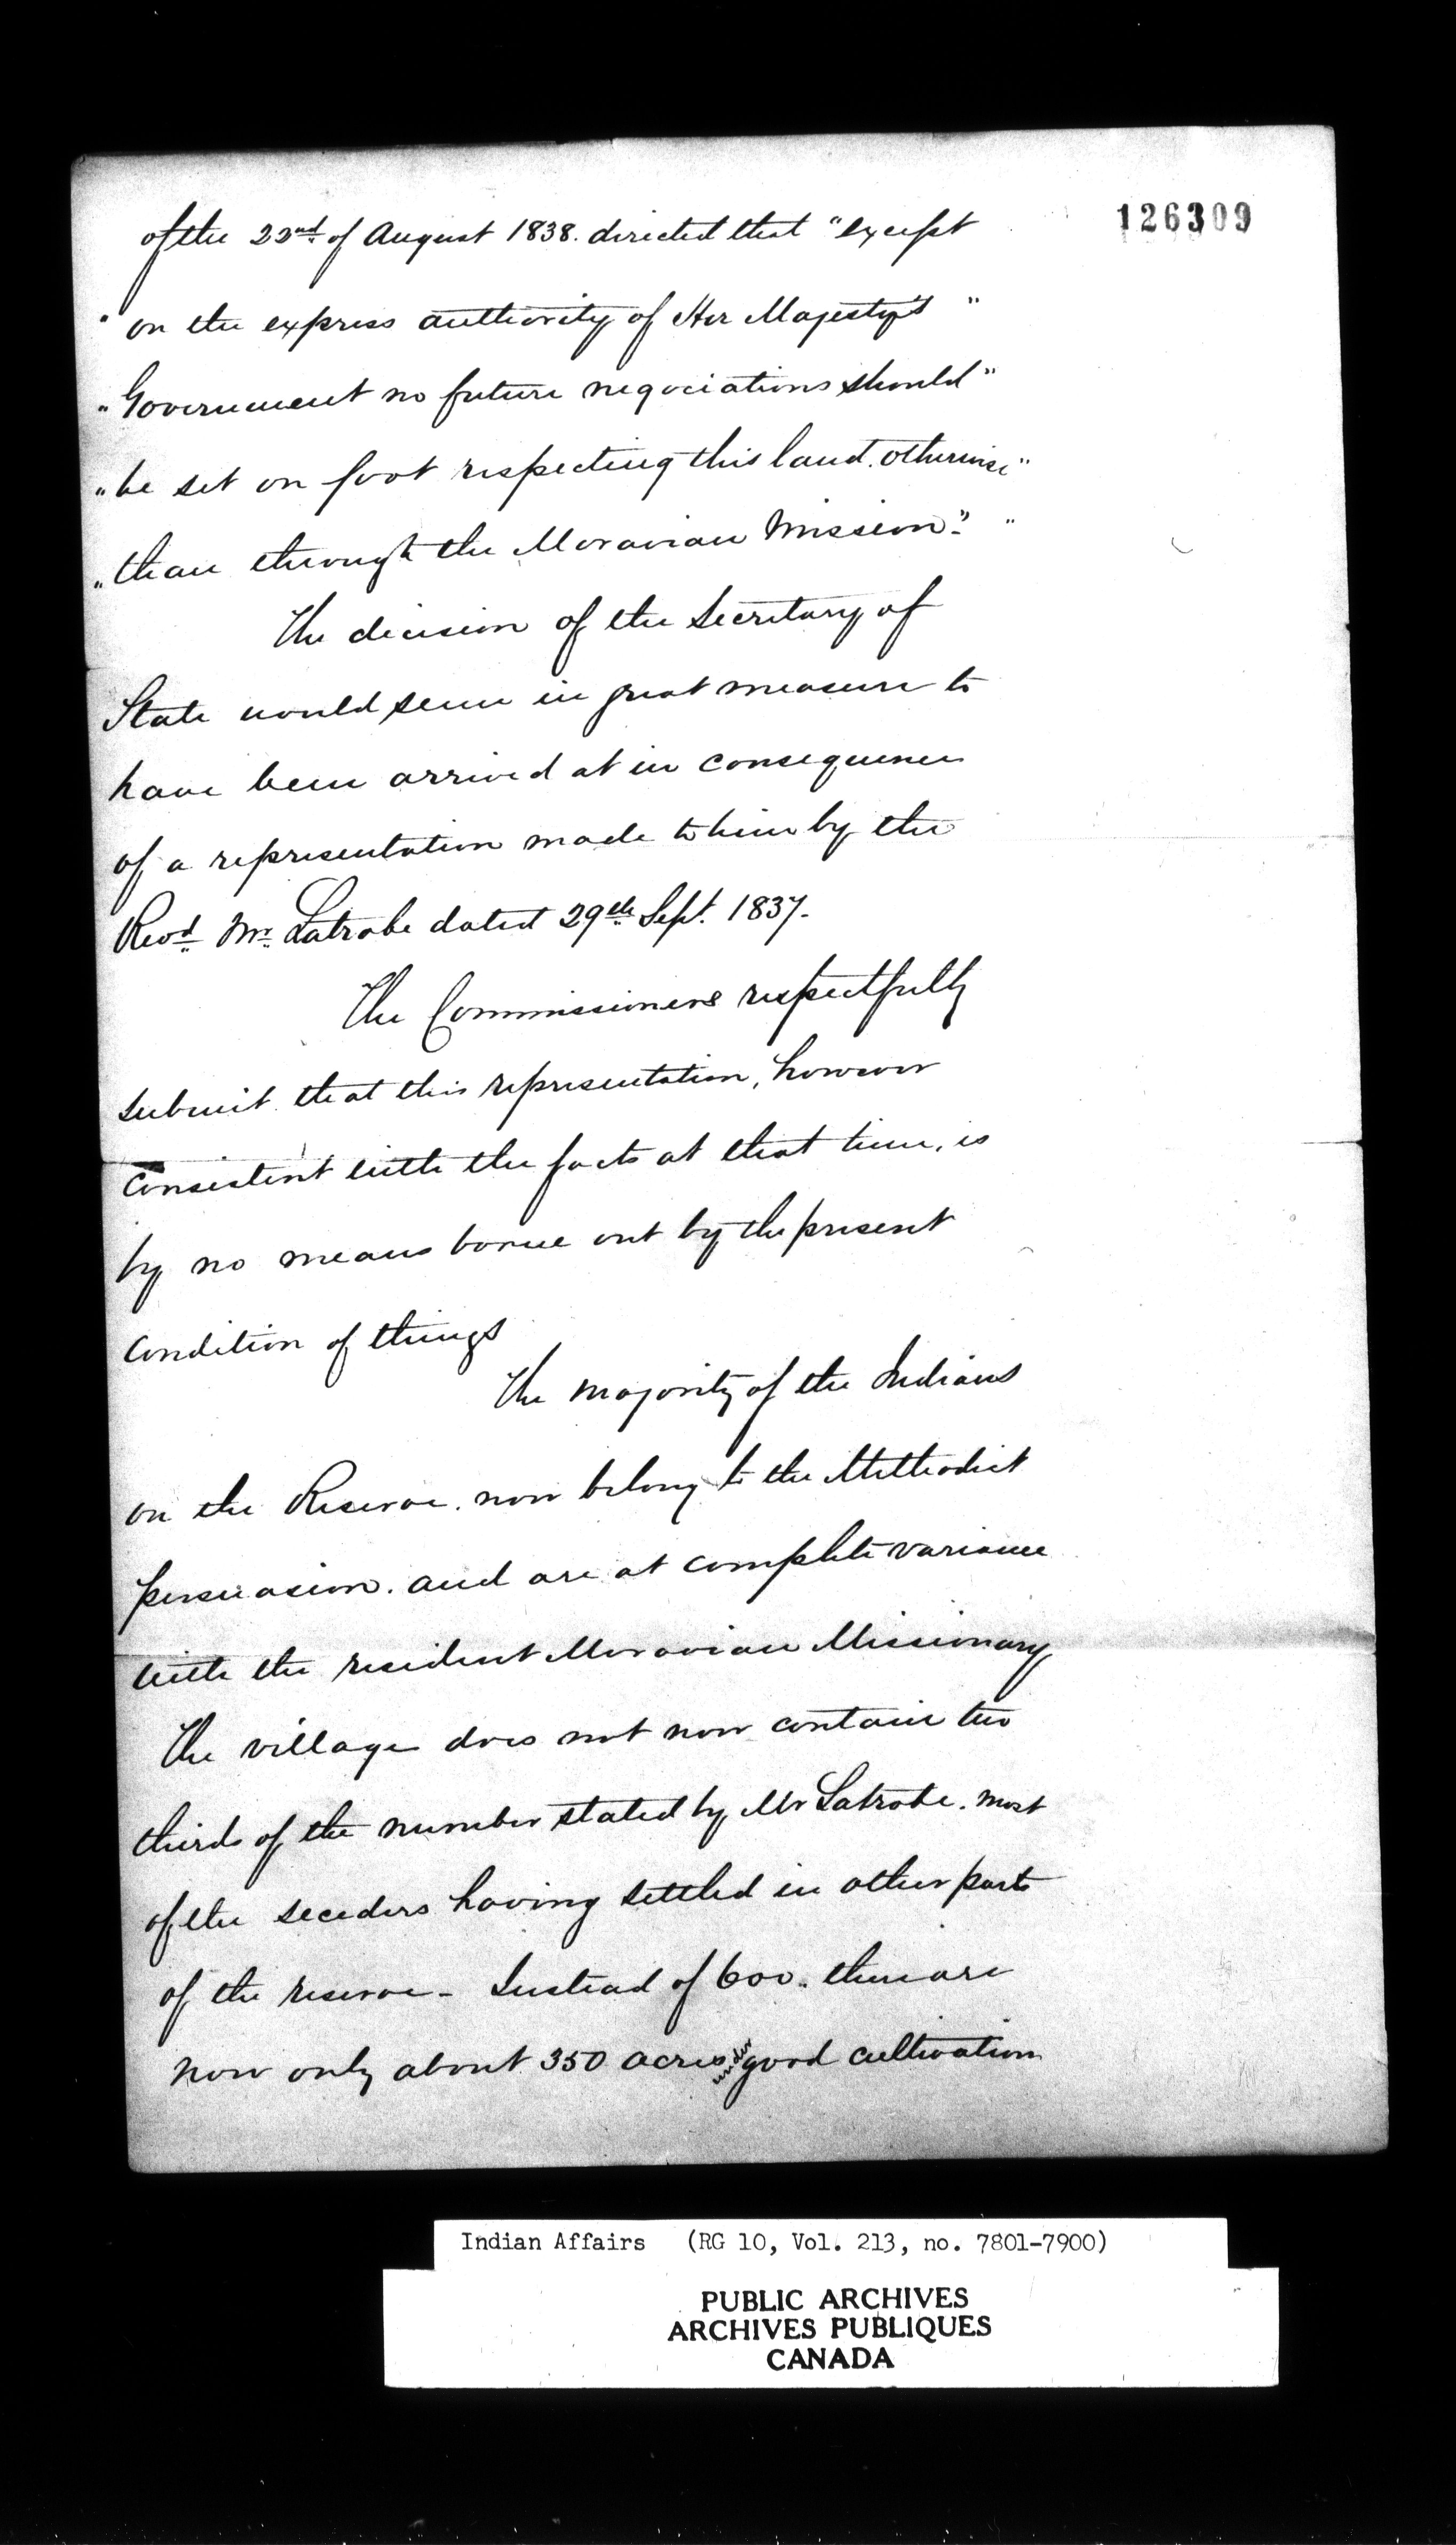 126309
of the 22nd of August 1838. directed that "except
" on the express authority of Her Majesty's "
" Government no future negociations should "
" be set on foot respecting this land. otherwise "
" than through the Moravian Mission." "
The decision of the Secretary of
State would seem in great measure to
have been arrived at in consequence
of a representation made to him by the
Revd. Mr. Latrobe dated 29th Sept. 1837.
The Commissioners respectfully
submit that this representation, however
consistent with the facts at that time, is
by no means borne out by the present
condition of things
The majority of the Indians
on the Reserve. now belong to the Methodist
persuasion. and are at complete variance
with the resident Moravian Missionary
The village does not now contain two
thirds of the number stated by Mr Latrobe. most
of the seceders having settled in other parts
of the reserve - Instead of 600.. there are
now only about 350 acres under good cultivation
Indian Affairs (RG 10, Vol. 213, no. 7801-7900)
PUBLIC ARCHIVES
ARCHIVES PUBLIQUES
CANADA